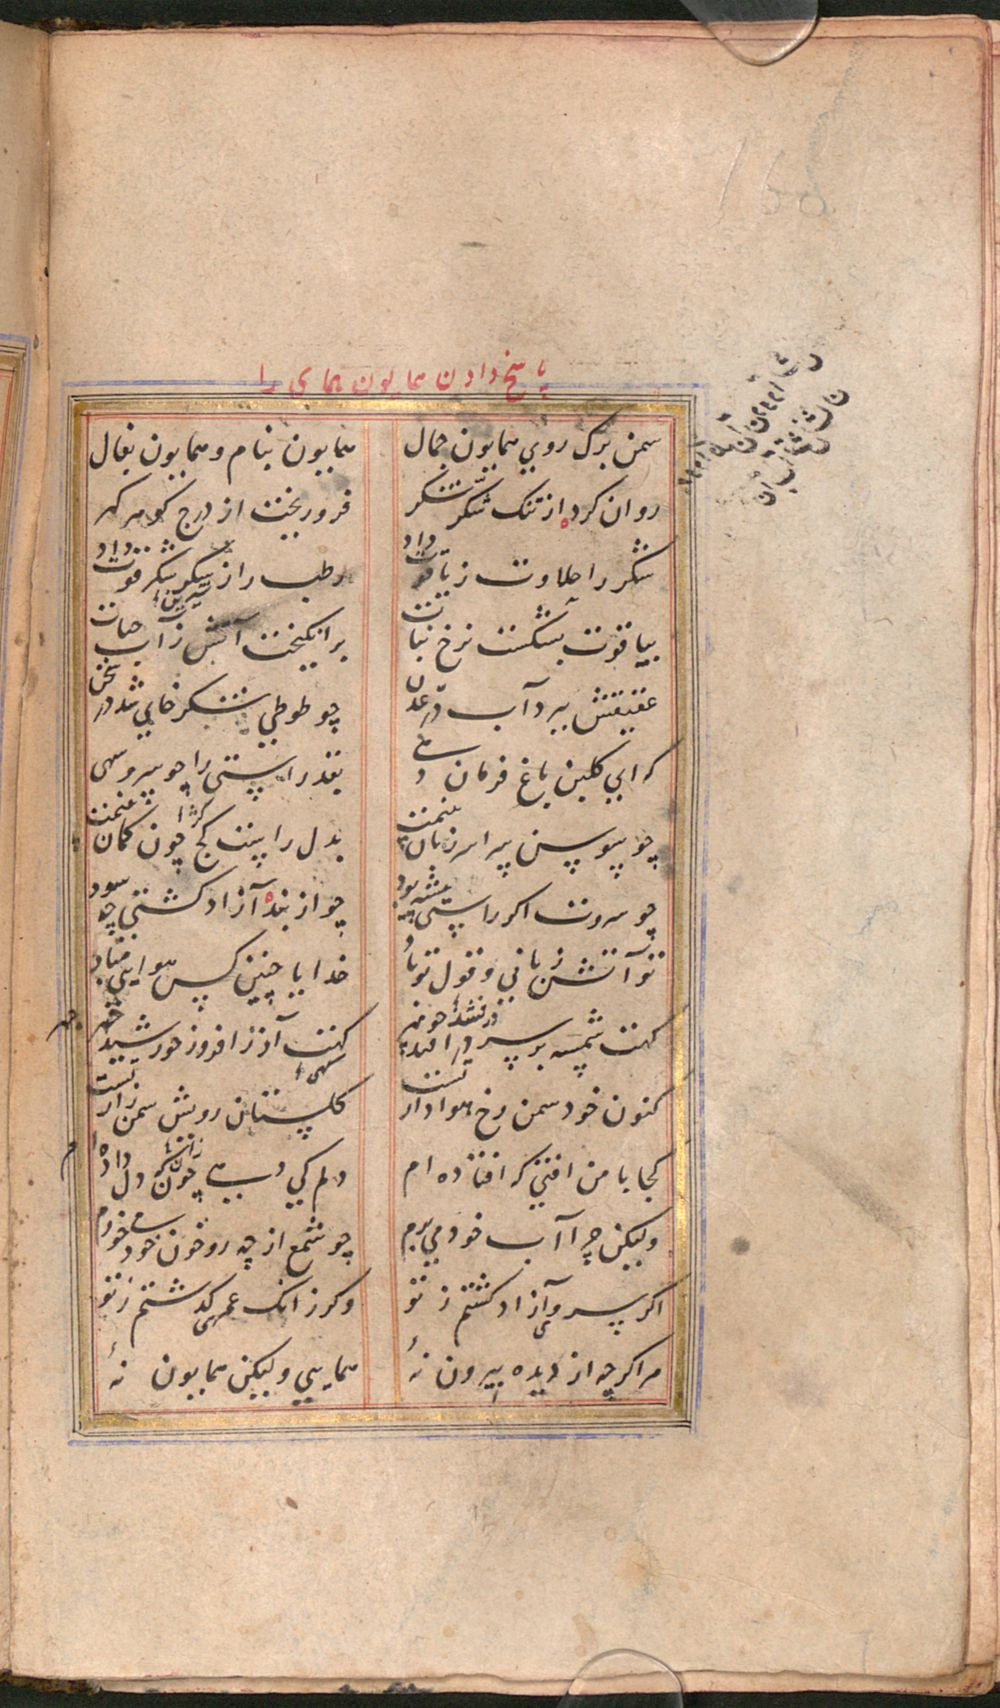 پاسخ دادن همایون همای را
سمن برک روی همایون جمال همایون بنام و همایون بفال
روان کرد از تنک شکر شکر فرو ریخت از درج کوهر کهر
شکر را حلاوت ز یاقوت داد رطب را ز شکر شکر قوت داد
بیاقوت بشکست نرخ نبات برانکیخت آتش ز آب حیات
عقیقش ببرد آب در عدن چو طوطی شکر خایی شد در سخن
که ای کلبن باغ فرمان دهی بقد راستی را چو سرو سهی
چو سوسن سراسر زبان بینمت بدل راست کج چون کمان بینمت
چو سروت اکر راستی پیشه بود چو از بنده آزاد کشتی چه سود
تو آتش زبانی و قول تو باد خدایا چنین کس هوایی مباد
کهت شمسه بر سر در افتد چو مهر کهت آذر افروز خورشید چهر
کنون خود سمن رخ هوادار تست کلستان رویش سمن زار تست
کجا با من افتی که افتاده ام دلم کی دهی چون که دل داده ام
ولیکن چرا آب خود می برم چو شمع از چه رو خون خود می خورم
اکر سرو آزاد کشتم ز تو وکر زانک عمری کذشتم ز تو
مرا کرچه از دیده بیرون نهٔ همایی ولیکن همایون نهٔ